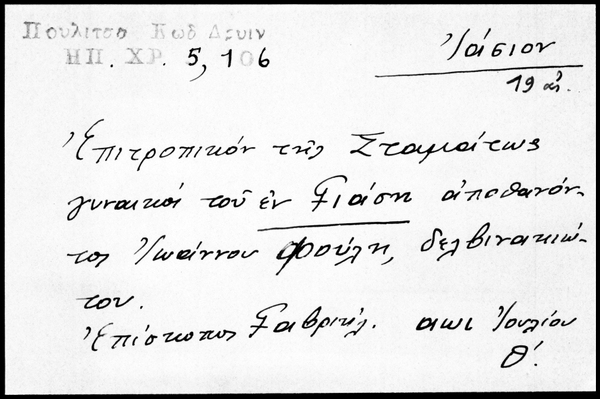 Πουλιτσα Κωδ Δρυιν
ΗΠ. ΧΡ. 5, 106
Ἰάσιον
19 αἰ.
Ἐπιτροπικόν τῆς Σταμάτως
γυναικός τοῦ ἐν Γιάση ἀποθανόν-
τος Ἰωάννου Φούλη, δελβινακιώ-
του.
Ἐπίσκοπος Γαβριήλ. αωι Ἰουλίου
θ΄.